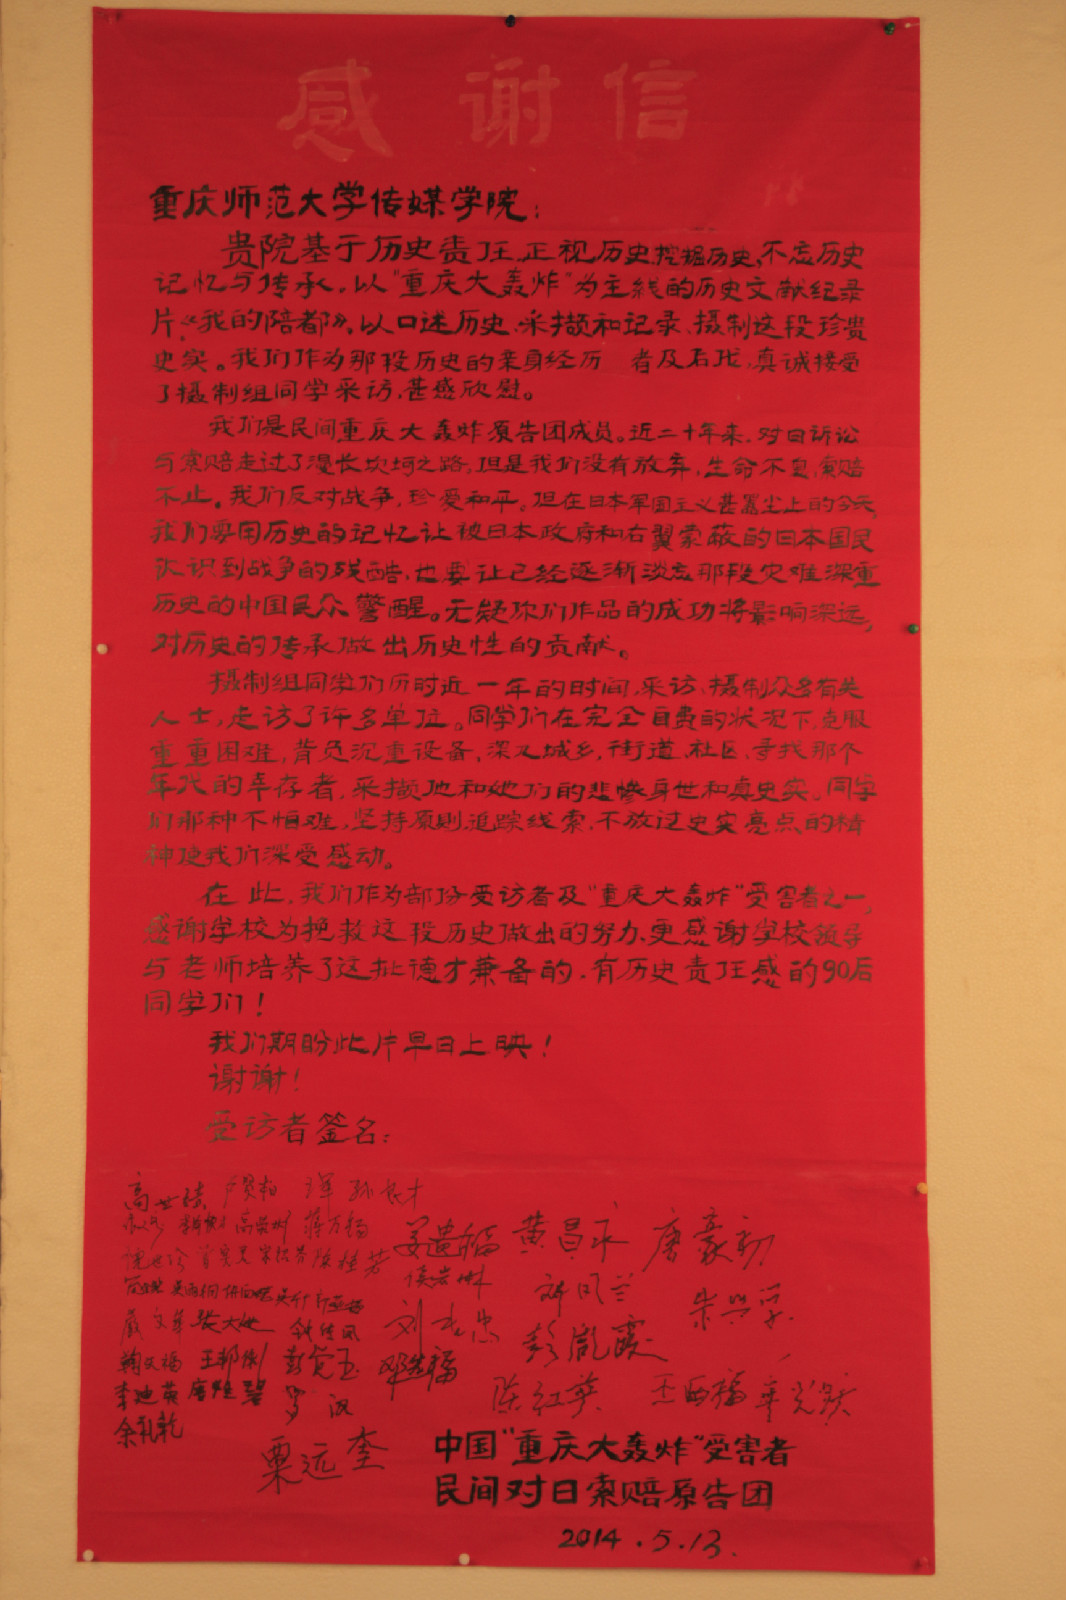 感谢信
重庆师范大学传媒学院：
贵院基于历史责任,正视历史挖掘历史,不忘历史
记忆与传承,以"重庆大轰炸"为主线的历史文献纪录
片《我的陪都》,以口述历史、采撷和记录、摄制这段珍贵
史实。我们作为那段历史的亲身经历 者及后代,真诚接受
了摄制组同学采访,甚感欣慰。
我们是民间重庆大轰炸原告团成员。近二十年来,对日诉讼
与索赔走过了漫长坎坷之路,但是我们没有放弃,生命不息,索赔
不止。我们反对战争,珍爱和平。但在日本军国主义甚嚣尘上的今天,
我们要用历史的记忆让被日本政府和右翼蒙蔽的日本国民
认识到战争的残酷,也要让已经逐渐淡忘那段灾难深重
历史的中国民众警醒。无疑你们作品的成功将影响深远,
对历史的传承做出历史性的贡献。
摄制组同学们历时近一年的时间,采访、摄制众多有关
人士,走访了许多单位。同学们在完全自费的状况下,克服
重重困难,背负沉重设备,深入城乡,街道、社区、寻找那个
年代的幸存者,采撷他和她们的悲惨身世和真史实。同学
们那种不怕难,坚持原则,追踪线索,不放过史实亮点的精
神使我们深受感动。
在此,我们作为部份受访者及"重庆大轰炸"受害者之一,
感谢学校为挽救这段历史做出的努力,更感谢学校领导
与老师培养了这批德才兼备的,有历史责任感的90后
同学们!
我们期盼此片早日上映!
谢谢!
受访者签名:
姜遗福 黄昌永 唐豪初
陈桂芳
刘 忠 朱兴学
彭 霞
严文华 张大
鞠天福 彭觉玉 邓 福
李迪英 罗汉 陈红英 王西福
余礼乾
粟远奎
中国"重庆大轰炸"受害者
民间对日索赔原告团
2014.5.13.